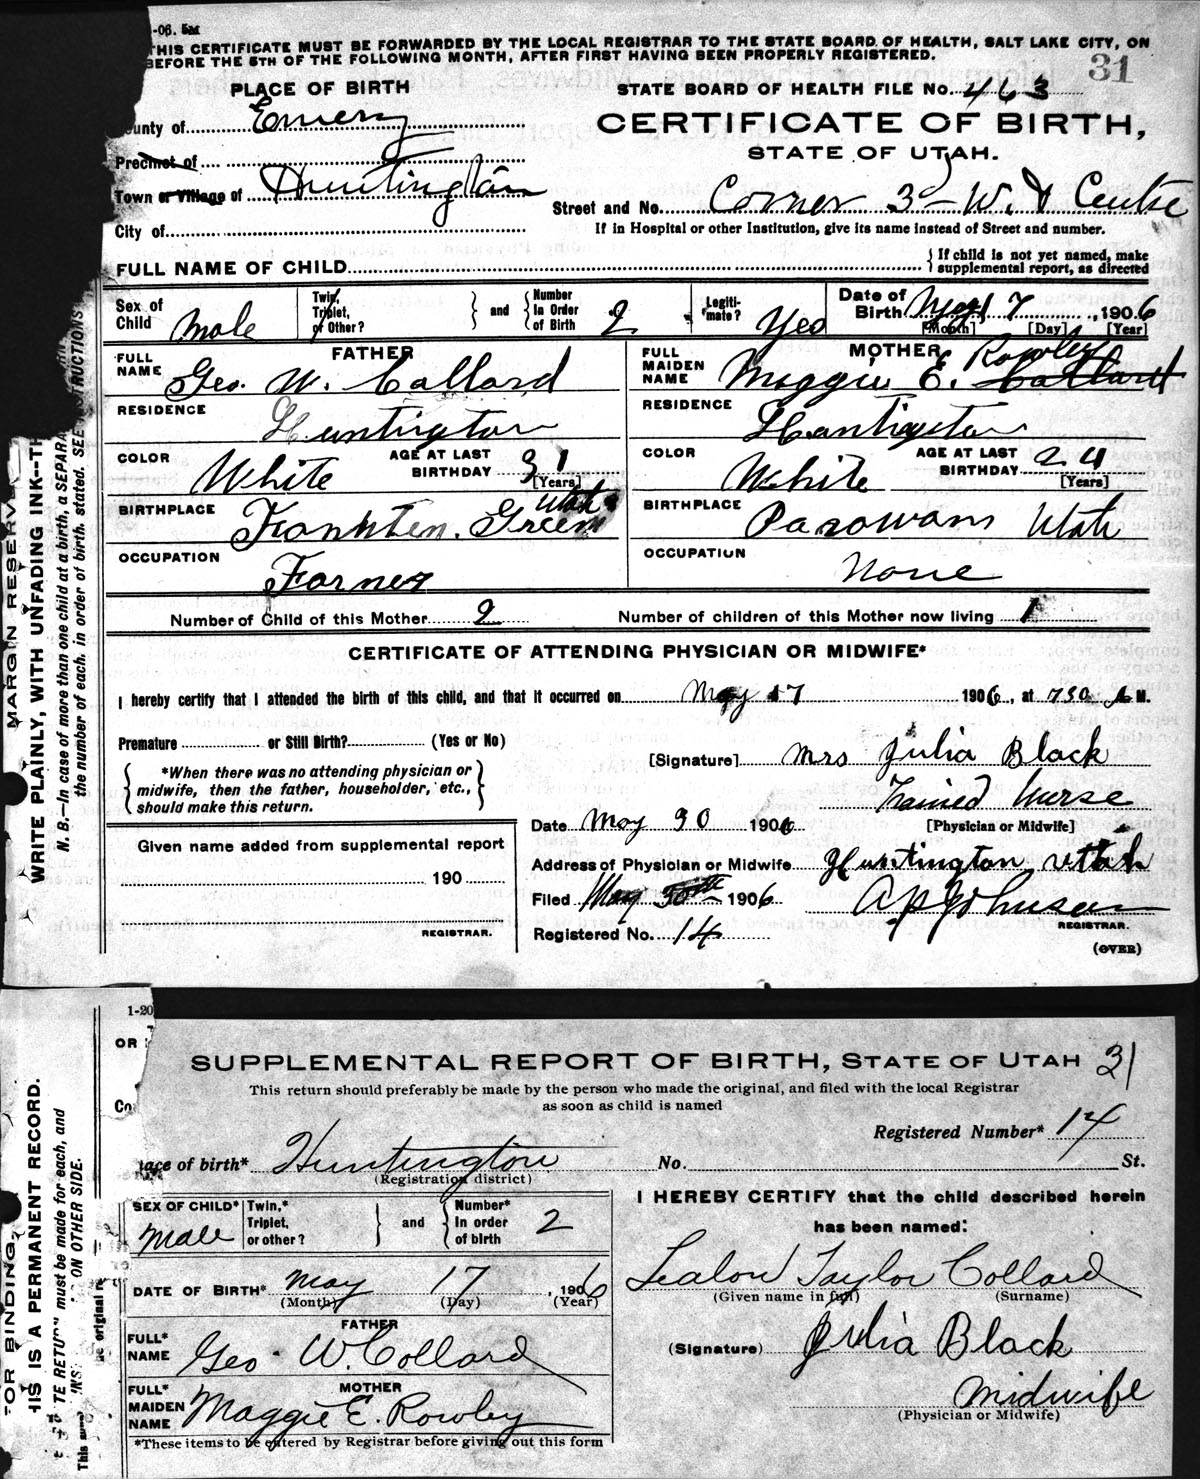 -06. 5M
THIS CERTIFICATE MUST BE FORWARDED BY THE LOCAL REGISTRAR TO THE STATE BOARD OF HEALTH, SALT LAKE CITY, ON
BEFORE THE 5TH OF THE FOLLOWING MONTH, AFTER FIRST HAVING BEEN PROPERLY REGISTERED.
31
PLACE OF BIRTH
STATE BOARD OF HEALTH FILE No. 463
unty of Emery
CERTIFICATE OF BIRTH,
STATE OF UTAH.
Precinct of
Town or Village of Huntington
Street and No. Corner 3 - W. & Centre
If in Hospital or other Institution, give its name instead of Street and number.
City of
FULL NAME OF CHILD
If child is not yet named, make
supplemental report, as directed
Sex of Child Male
Twin, Triplet, or Other?
and
Number In Order of Birth 2
Legiti-mate? Yes
Date of Birth May 17, 1906
[Month] [Day] [Year]
FATHER
FULL NAME Geo. W. Collard
RESIDENCE Huntington
COLOR White
AGE AT LAST BIRTHDAY 31
[Years]
BIRTHPLACE Green Utah
OCCUPATION Farmer
MOTHER
FULL MAIDEN NAME Maggie E. Collard Rowley
RESIDENCE Huntington
COLOR White
AGE AT LAST BIRTHDAY 24
[Years]
BIRTHPLACE Parowan Utah
OCCUPATION None
Number of Child of this Mother 2
Number of children of this Mother now living 1
CERTIFICATE OF ATTENDING PHYSICIAN OR MIDWIFE*
I hereby certify that I attended the birth of this child, and that it occurred on May 17 1906, at 730 A M.
Premature or Still Birth? (Yes or No)
*When there was no attending physician or
midwife, then the father, householder, etc.,
should make this return.
[Signature] Mrs Julia Black
Trained Nurse
[Physician or Midwife]
Date May 30 1906
Address of Physician or Midwife Huntington Utah
Filed May 30th 1906
A P Johnson
REGISTRAR.
Registered No. 14
(OVER)
Given name added from supplemental report
190
REGISTRAR.
MARGIN RESERV
WRITE PLAINLY, WITH UNFADING INK--TH
N. B.—In case of more than one child at a birth, a SEPARA
the number of each, in order of birth, stated. SEE STRUCTIONS
1-20
OR
SUPPLEMENTAL REPORT OF BIRTH, STATE OF UTAH 31
This return should preferably be made by the person who made the original, and filed with the local Registrar
as soon as child is named
Co
Registered Number* 14
lace of birth* Huntington
(Registration district)
No. St.
SEX OF CHILD* Male
Twin,* Triplet, or other?
and
Number* In order of birth 2
DATE OF BIRTH* May 17, 1906
(Month) (Day) (Year)
FATHER
FULL* NAME Geo. W. Collard
MOTHER
FULL* MAIDEN NAME Maggie E. Rowley
*These items to be entered by Registrar before giving out this form
I HEREBY CERTIFY that the child described herein
has been named:
Taylor Collard
(Given name in full) (Surname)
(Signature) Julia Black
Midwife
(Physician or Midwife)
FOR BINDING,
HIS IS A PERMANENT RECORD.
TE RETURN must be made for each, and
ON OTHER SIDE.